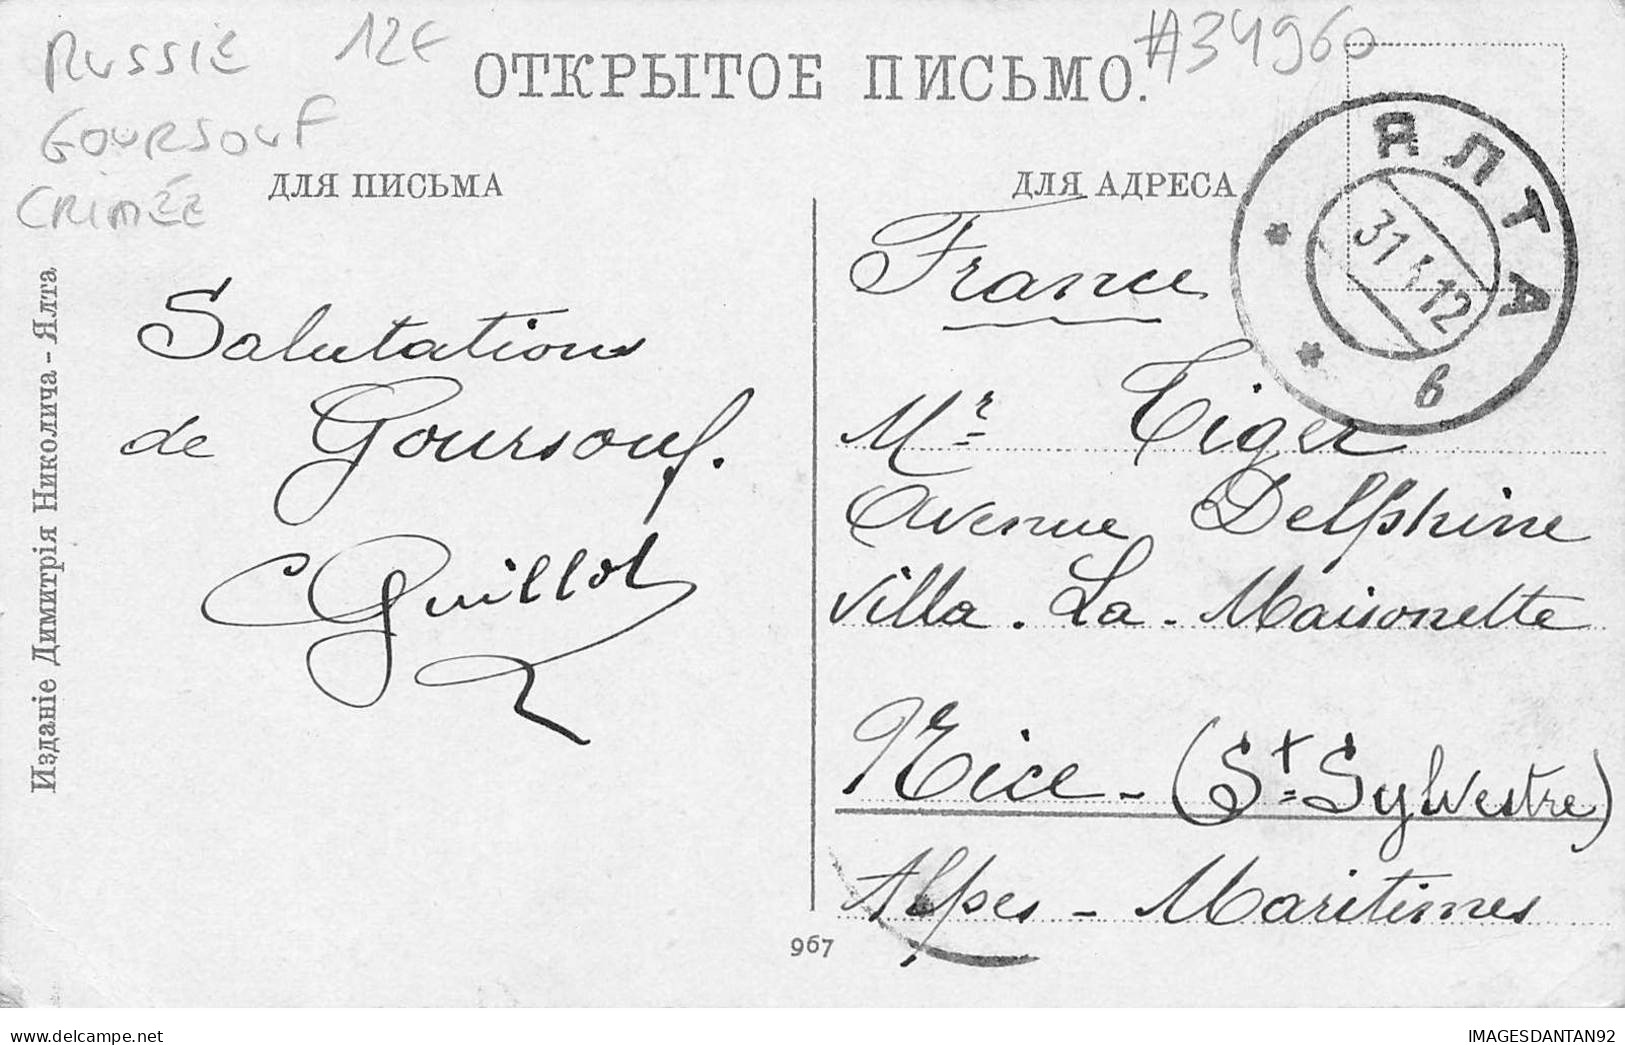 RUSSIE 12€
GOURSOUF
CRIMÉE
#34960
ОТКРЫТОЕ ПИСЬМО.
ДЛЯ ПИСЬМА
ДЛЯ АДРЕСА
ЯЛТА
31 12
Изданіе Димитрія Николича - Ялта
Salutations
de Goursouf.
Guillot
France
Mr Tiger
Avenue Delphine
Villa. La. Maisonette
Nice - (St Sylvestre)
Alpes - Maritimes
967
www.delcampe.net
IMAGESDANTAN92